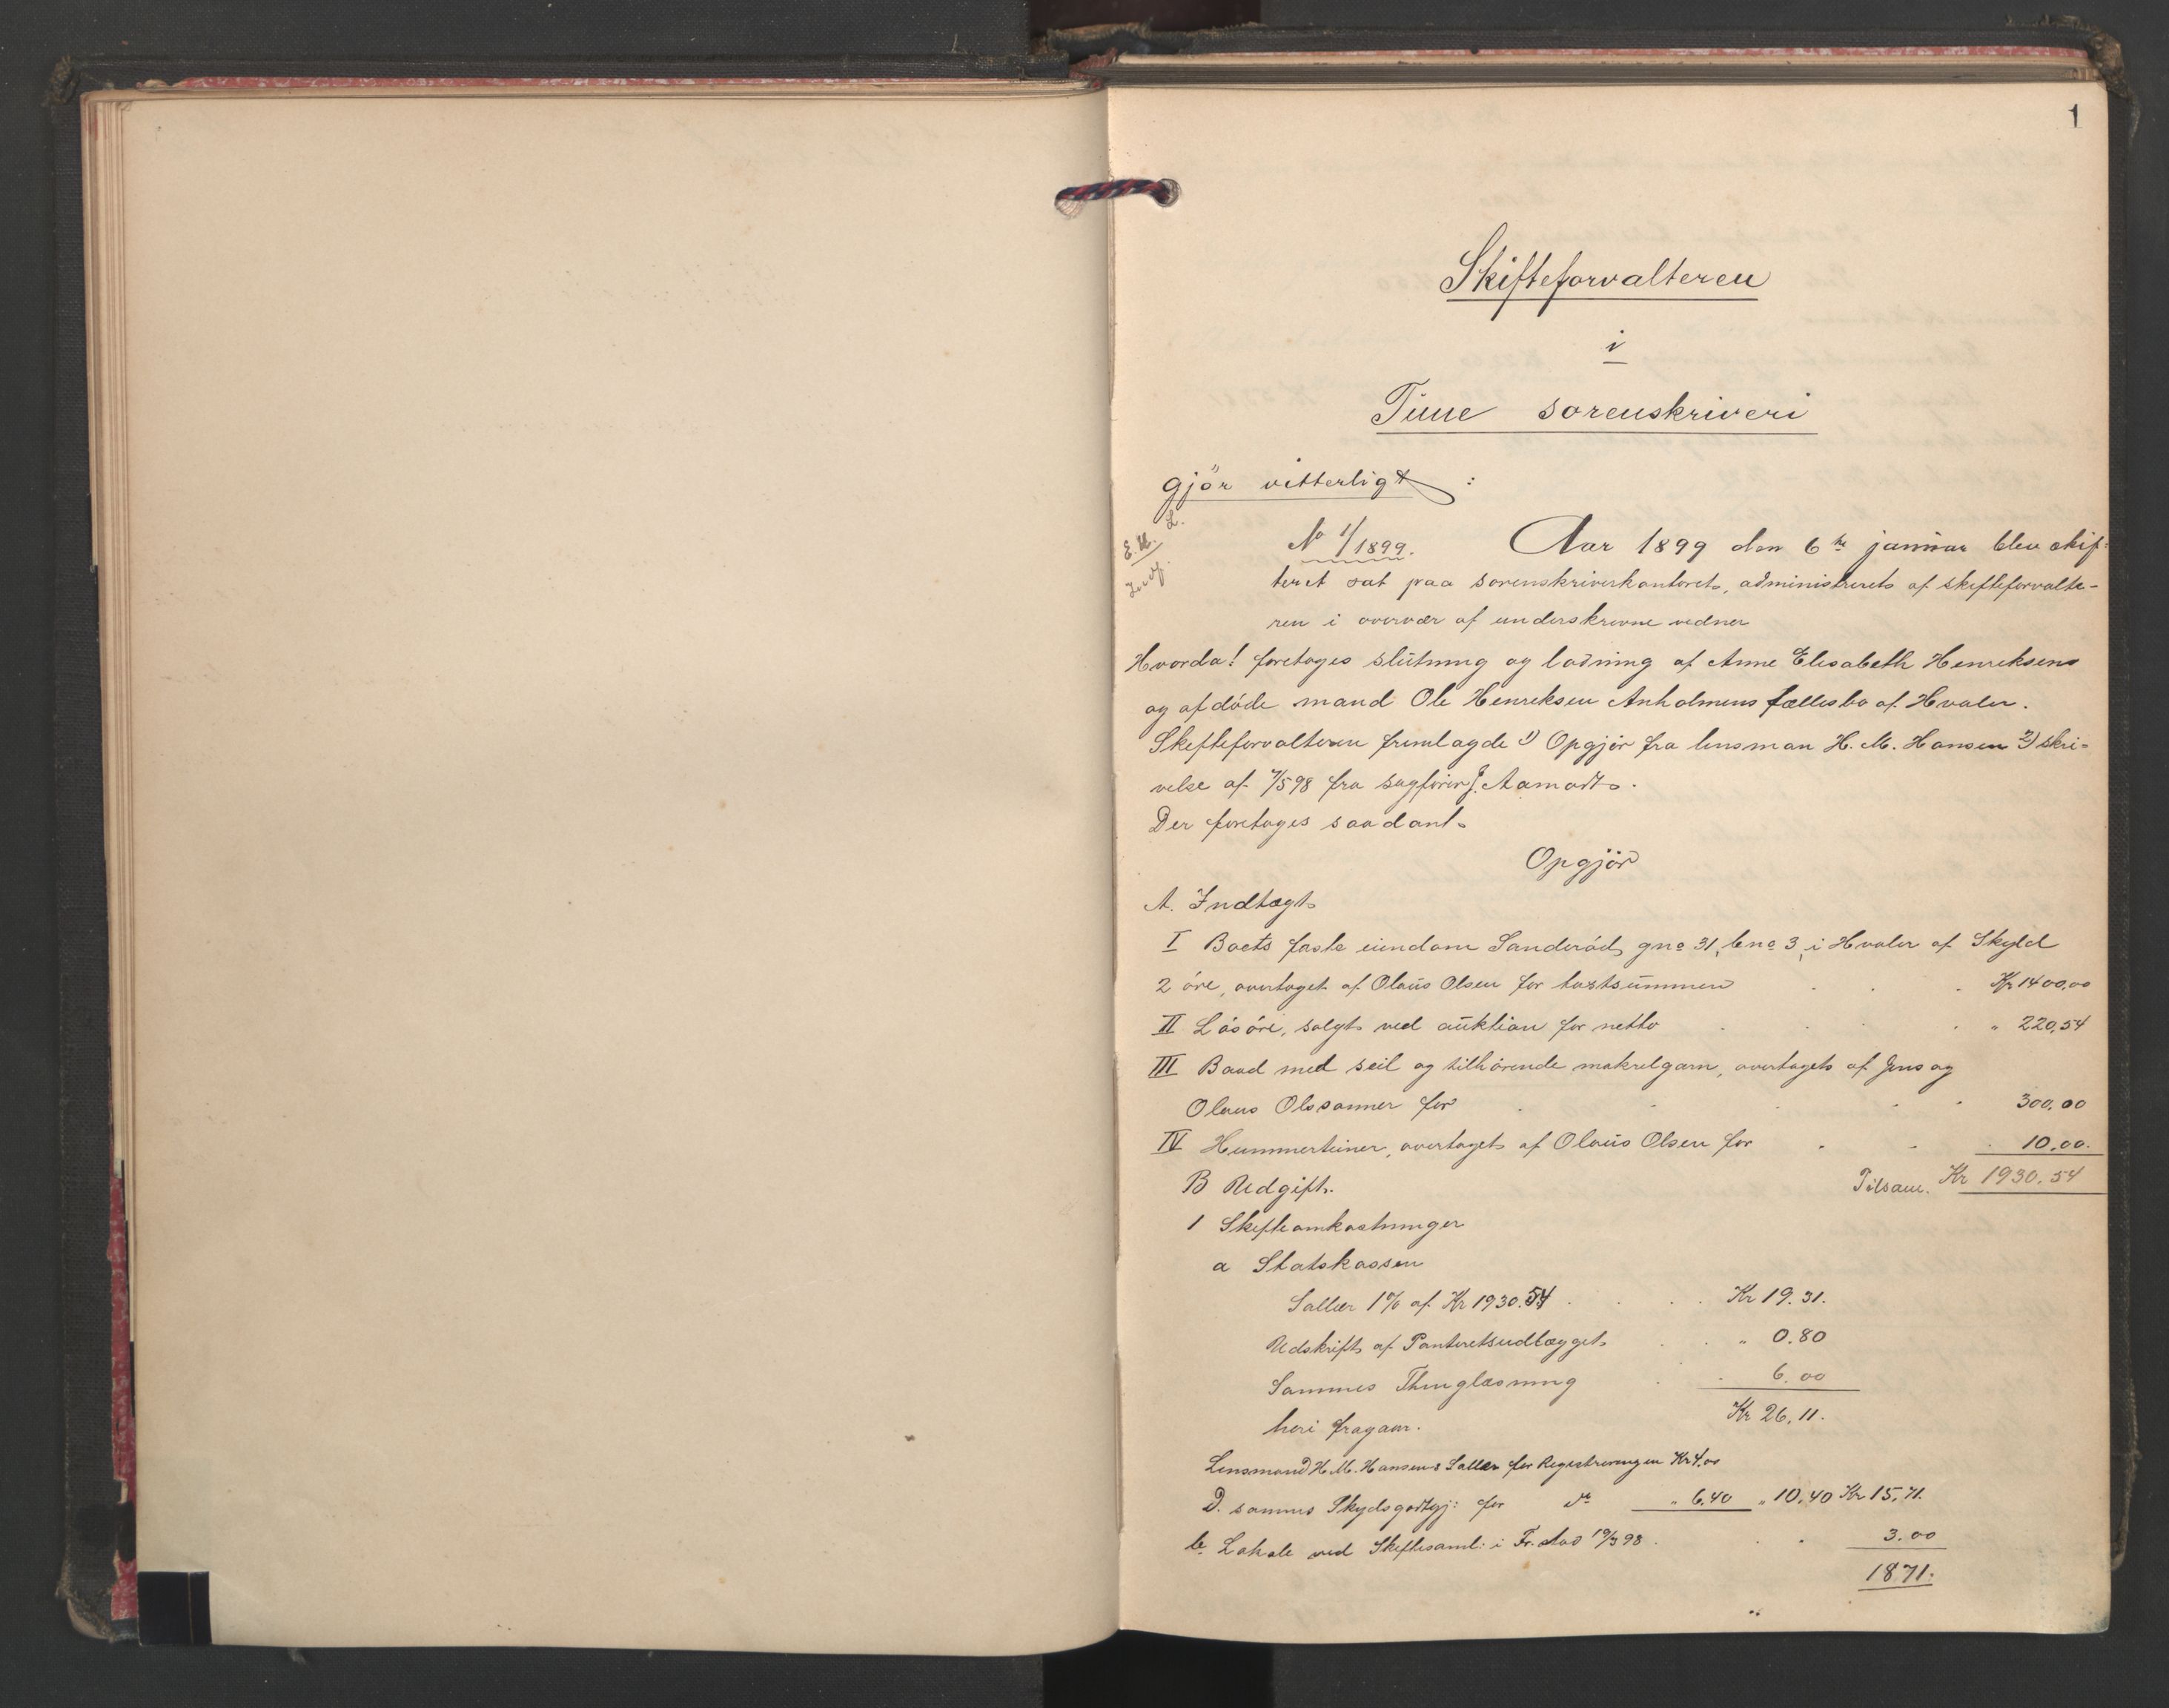 1
Skifteforvalteren
i
Tune sorenskriveri
gjör vitterligt :
L.
E. U.
No 1/1899. Aar 1899 den 6te januar blev skif=
teret sat paa sorenskriverkontoret, administreret af skifteforvalte-
ren i overvær af underskrevne vidner
Hvorda! foretages slutning og lodning af Anne Elisabeth Henriksens
og afdöde mand Ole Henriksen Anholmens fællesbo af Hvaler.
Skifteforvalteren fremlagde 1) Opgjör fra lensman H. M. Hansen 2) skri-
velse af 7/5 98 fra sagförer J. Aamodt.
Der foretages saadant.
Opgjör
A. Indtægt
I Boets faste eiendom Sanderöd, gno 31, bno 3, i Hvaler af Skyld
2 öre, overtaget af Olaus Olsen for taxtsummen . . . Kr 1400,00
II Lösöre, solgt ved auktion for netto . . . . " 220,54
III Baad med seil og tilhörende makrelgarn, overtaget af Jens og
Olaus Olssönner for . . . . . 300,00
IV Hummerteiner, overtaget af Olaus Olsen for . . . 10.00.
B Udgift. Tilsam. Kr 1930.54
1 Skifteomkostninger
a Statskassen
Sallær 1% af Kr 1930.54 . . . . Kr 19.31.
Udskrift af Panteretsudlægget . . " 0.80
Sammes Thinglæsning . . 6.00
heri fragaar. Kr 26.11.
Lensmand H. M. Hansens Sallær for Registreringen Kr 4.00
D. sammes Skydsgodtgj: for do " 6,40 " 10,40 Kr 15,71.
b. Lokale ved Skiftesaml: i Fr.stad 19/3 98 . . . 3.00
18.71.